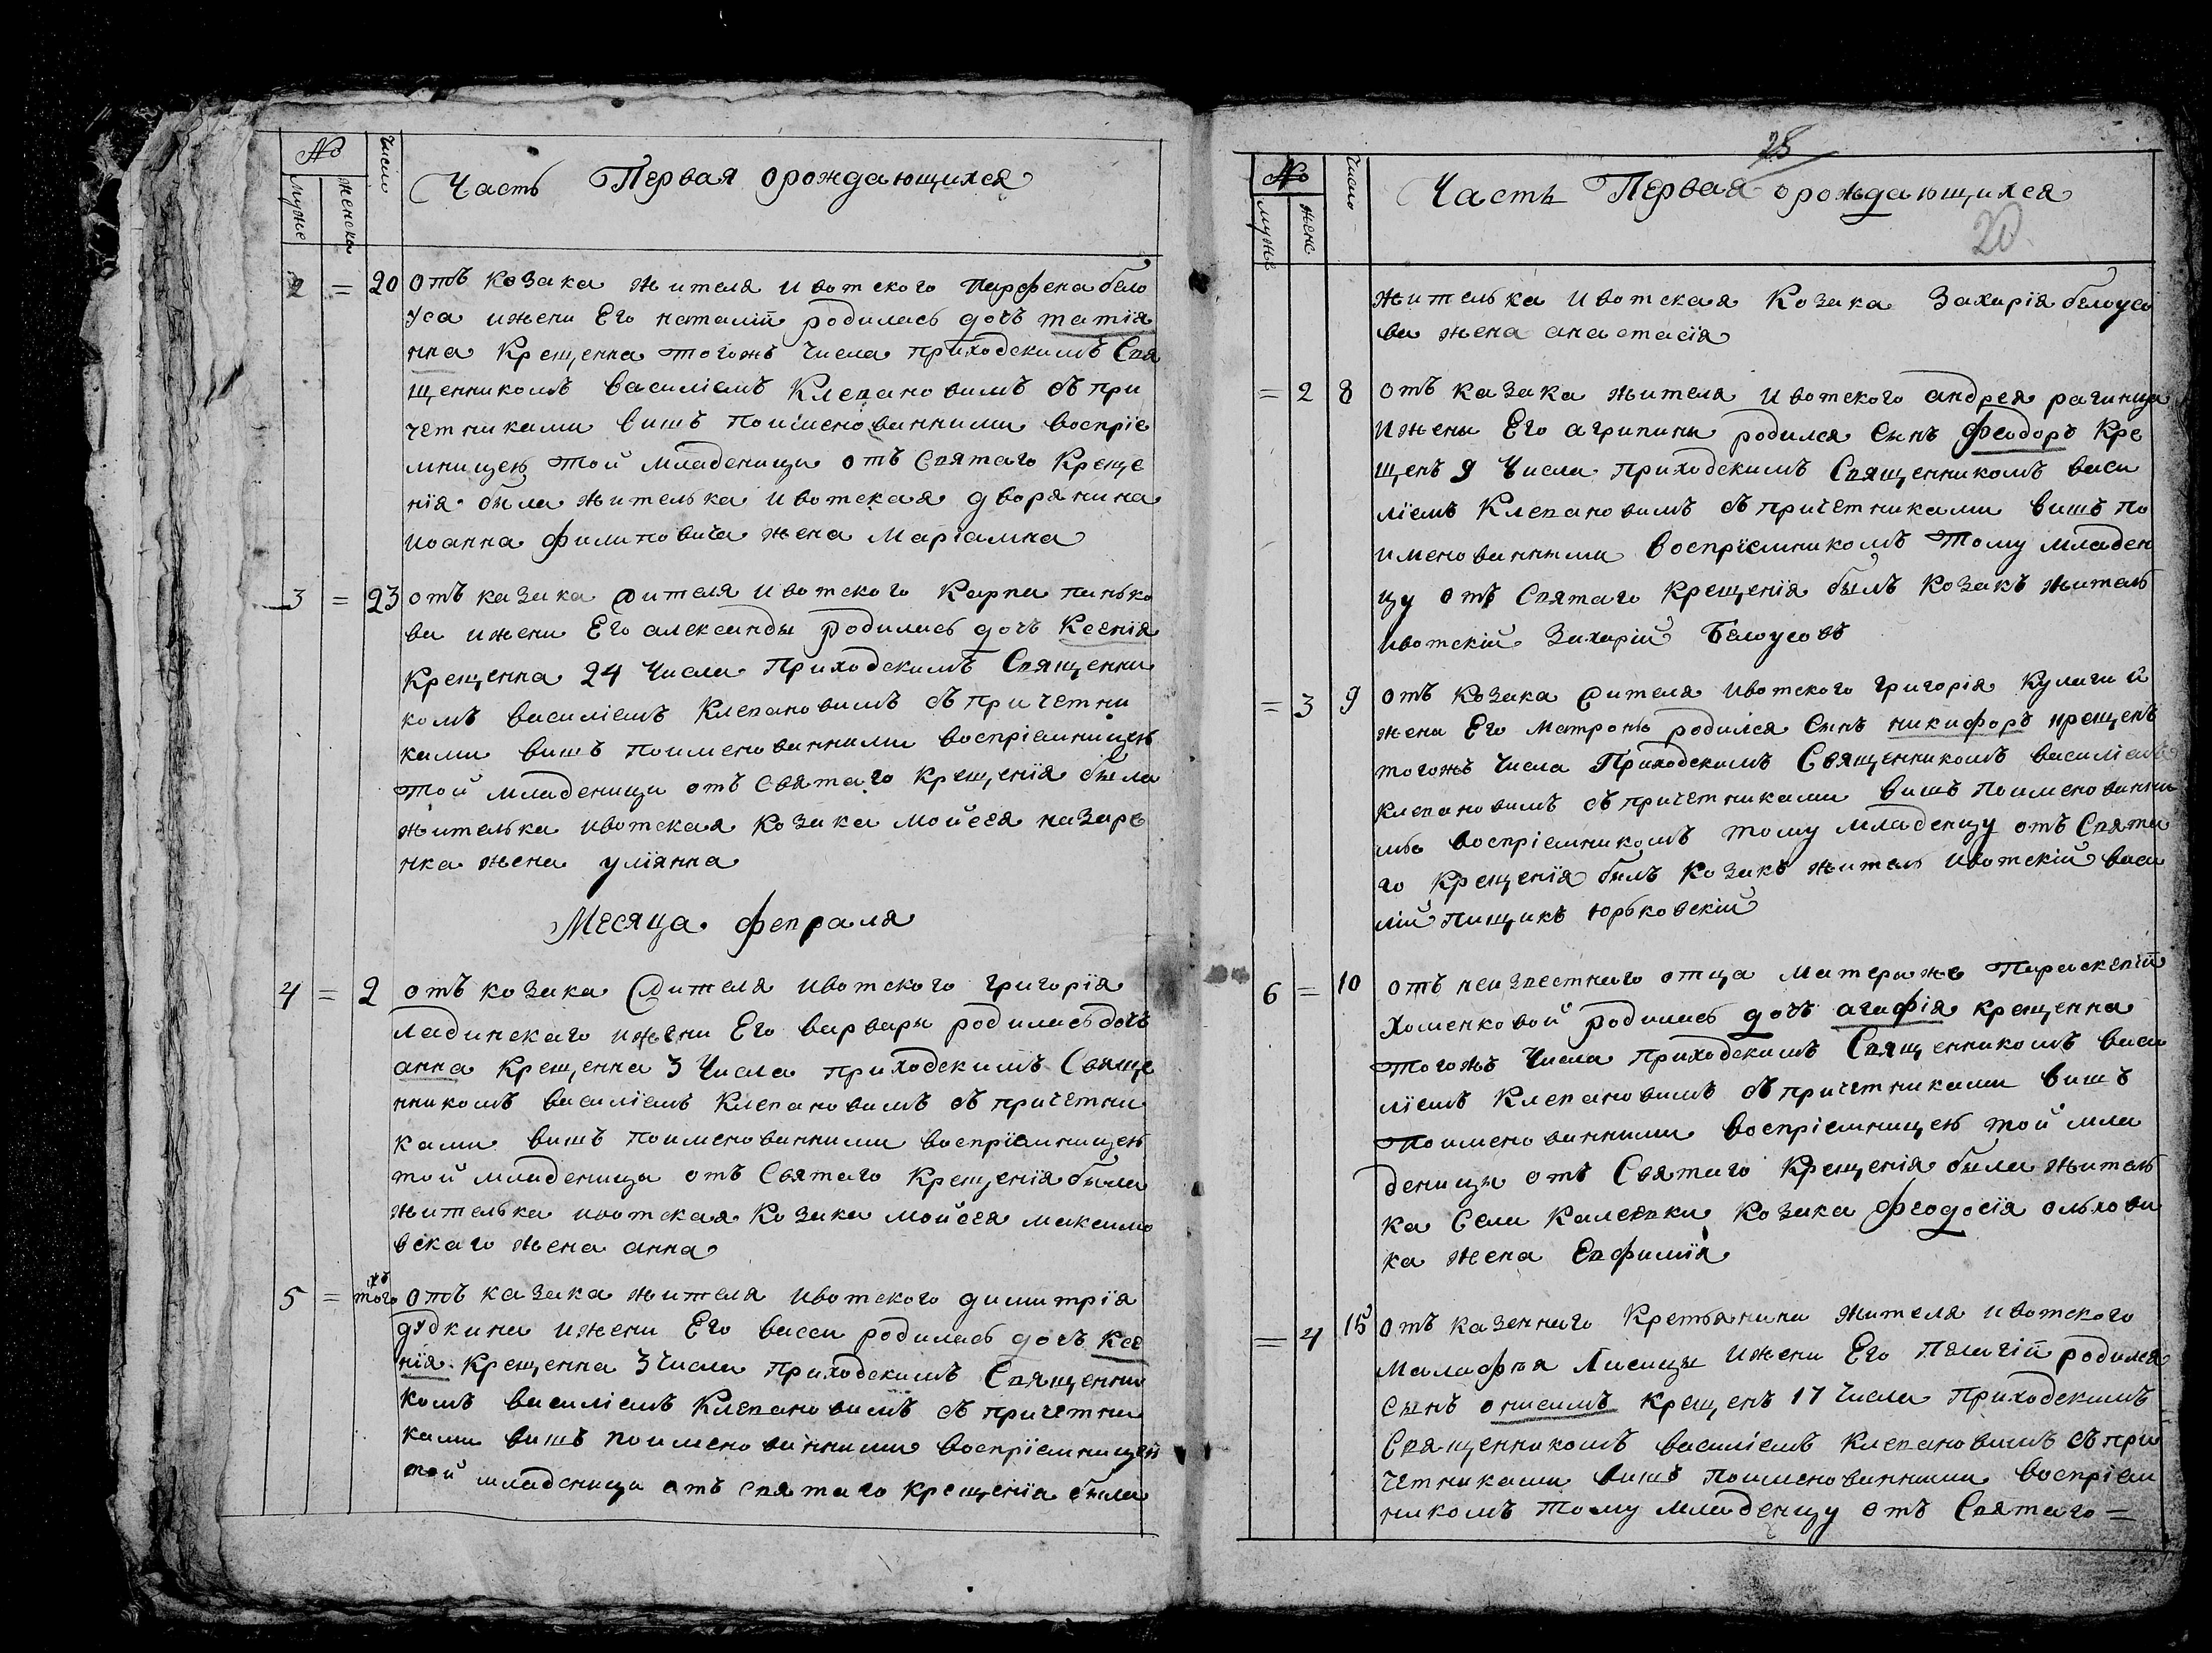 №
Число
Мужс
Женска
Часть Первая орождающихся
2 = 20 Отъ козака жителя ивотского Парфена бело
уса ижени Его наталїи родилась дочъ татїя
нна Крещенна тогожъ Числа приходскимъ Свя
щенникомъ василїемъ Клепановимъ съ при
четниками вишъ поименованними воспрїе
мницею той младеници отъ Святаго Креще
нїя была жителька ивотская дворянина
иоанна филиповича жена Марїамна
3 = 23 отъ казака жителя ивотского Карпа панько
ва ижени Его александы родилась дочъ Ксенїя
Крещенна 24 Числа Приходскимъ Священни
комъ василїемъ Клепановимъ съ причетни
ками вишъ поименованними воспрїемницею
той младеници отъ Святаго Крещенїя была
жителька ивотская козака мойсея назаре
нка жена улїянна
Месяца февраля
4 = 2 отъ козака жителя ивотского григорїя
ладинскаго ижени Его варвары родиласьдочъ
анна Крещенна 3 Числа приходскимъ Свяще
нникомъ василїемъ Клепановимъ съ причетни
ками вишъ поименованними воспрїемницею
той младеница отъ Святаго Крещенїя была
жителька ивотская Козака мойсея максимо
вскаго жена анна
5 = тогожъ отъ казака жителя ивотского димитрїя
дудкина ижени Его васси родилась дочъ Ксе
нїя Крещенна 3 Числа приходскимъ Священни
комъ василїемъ Клепановимъ съ причетни
ками вишъ поименованними воспрїемницей
той младеници отъ святаго крещенїя была
28
№
Число
Мужс
женс
Часть Первая орождающихся
20
жителька ивотская Козака Захарїя белоусо
ва жена анастасїя
= 2 8 отъ казака жителя ивотского андрея рагинца
ижены Его агрипины родился сынъ феодоръ Кре
щенъ 9 Числа приходскимъ Священникомъ васи
лїемъ Клепановимъ съ причетниками вишъ по
именованными воспрїемникомъ тому младен
цу отъ Святаго Крещенїя былъ Козакъ житель
ивотскїй Захарїй Белоусовъ
= 3 9 отъ Козака жителя ивотского григорїя Кулаги и
жени Его матроны родился сынъ никифоръ крещенъ
тогожъ Числа Приходскимъ Священникомъ василїемъ
клепановимъ съ причетниками вишъ поименованни
мы воспрїемникомъ тому младенцу отъ Свята
го Крещенїя былъ Козакъ житель ивотскїй васи
лїй пищикъ юрьковскїй
6 = 10 отъ неизвестнаго отца матери же Параскевїи
Хоменковой родилась дочъ агафїя крещенна
тогожъ Числа приходскимъ Священникомъ васи
лїемъ Клепановимъ съ причетниками вишъ
поименованними воспрїемницею той мла
деницы отъ Святаго Крещенїя была житель
ка села Калевки козака феодосїя ольхови
ка жена Евфимїя
= 4 15 Отъ казеннаго Крестянина жителя ивотского
Малафѣя Лисицы ижени Его Пелагїи родился
сынъ онисимъ Крещенъ 17 Числа Приходскимъ
Священникомъ василїемъ Клепановимъ съ при
четниками вишъ поименованними воспрїем
никомъ тому младенцу отъ Святаго =